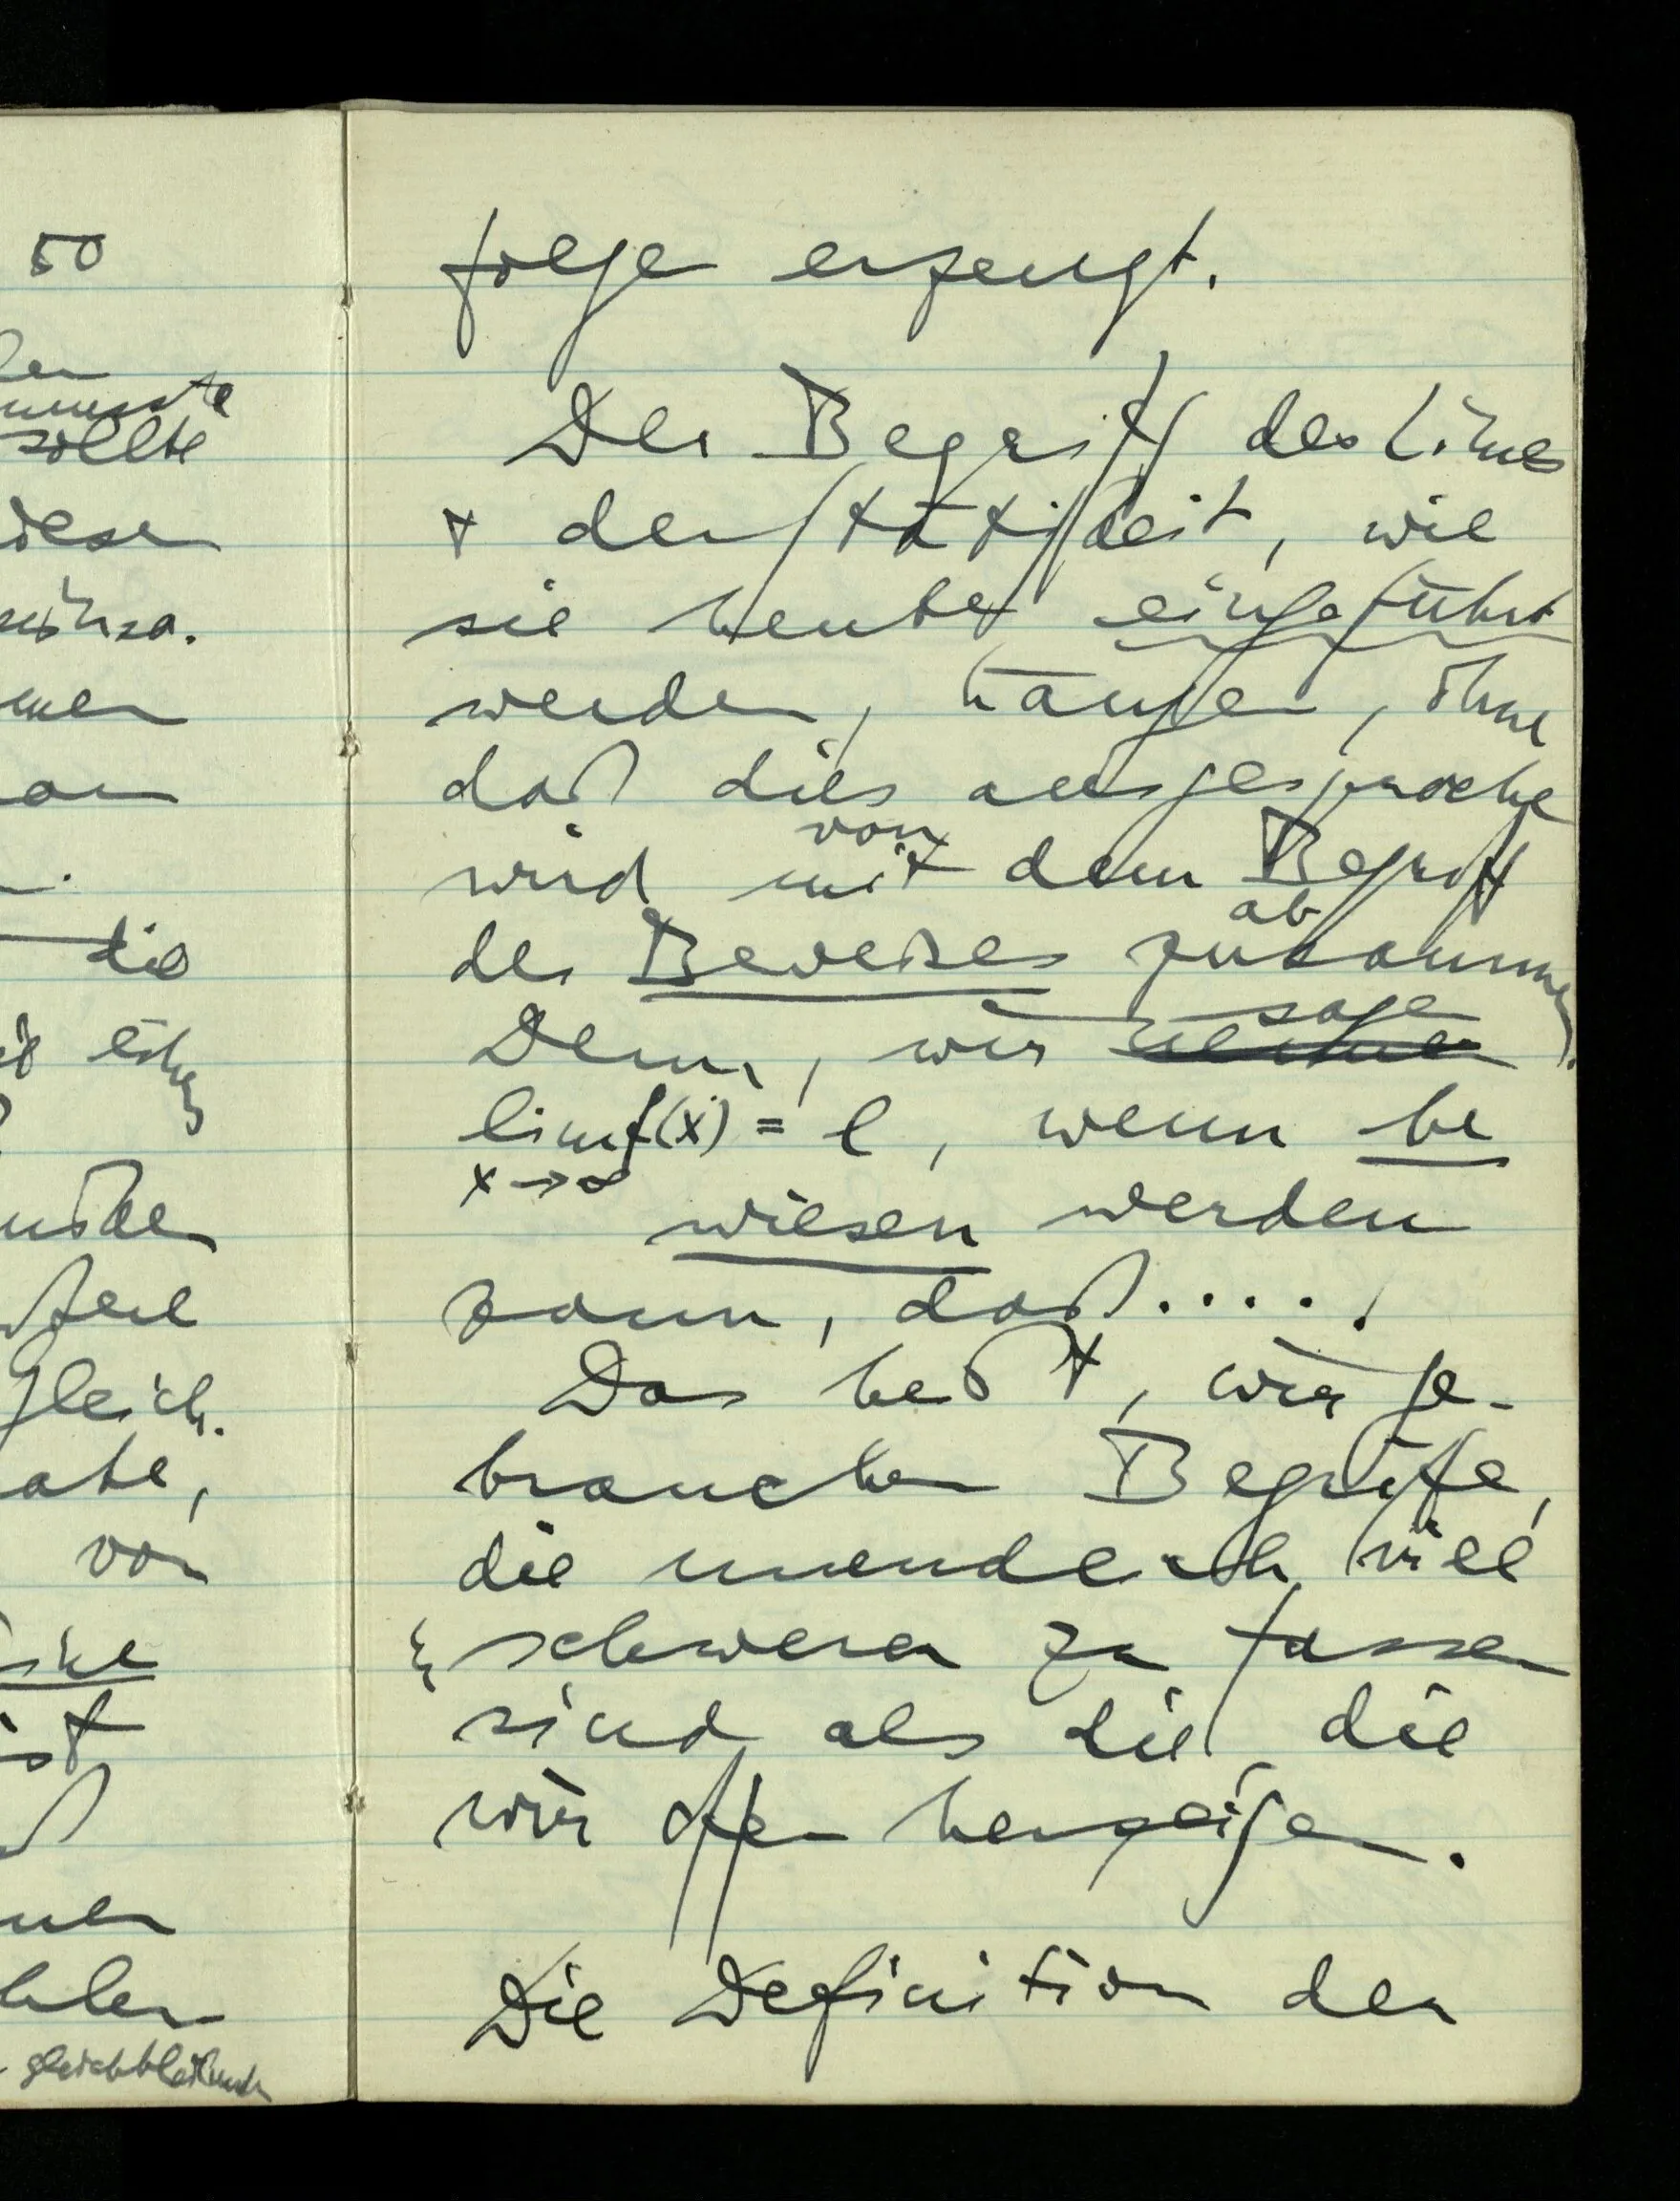 50
musste
sollte
die
gleich.
von
ist
gleichbleibende
folge erzeugt.
Der Begriff des Limes
+ der Stätigkeit, wie
sie heute eingeführt
werden, hängen, ohne
daß dies ausgesproche
von
wird mit dem Begriff
ab
des Beweises zusammen.
sage
Denn, wir
lim f(x) = l, wenn be
x→∞
wiesen werden
kann, daß . . . . .
Das heißt, wir ge-
brauchen Begriffe,
die unendlich viel
schwerer zu fassen
sind als die die
wir offen herzeigen.
Die Definition der